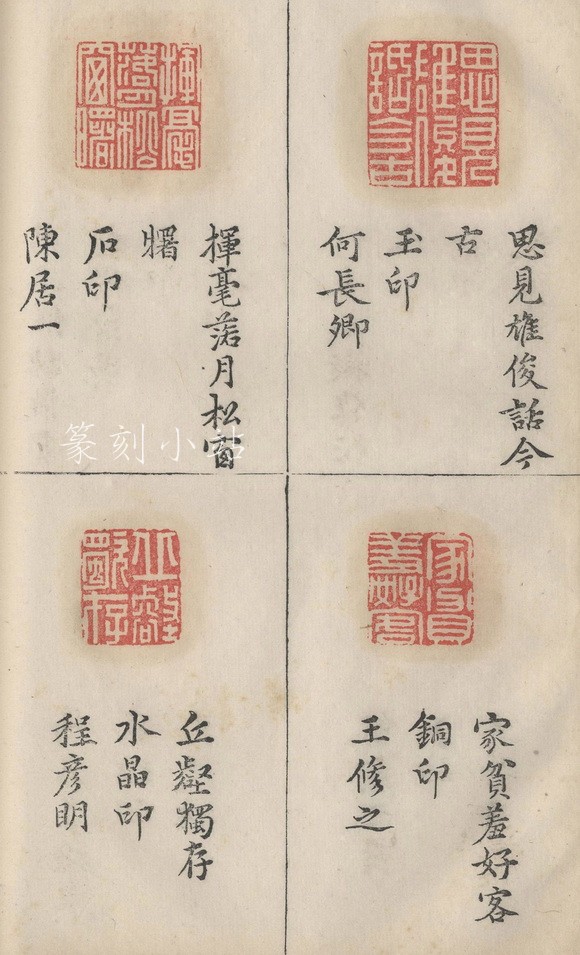 思見雄俊話今
古
玉印
何長卿
揮毫落月松窗
曙
石印
陳居一
家貧羞好客
銅印
王修之
丘壑獨存
水晶印
程彥明
篆刻小站